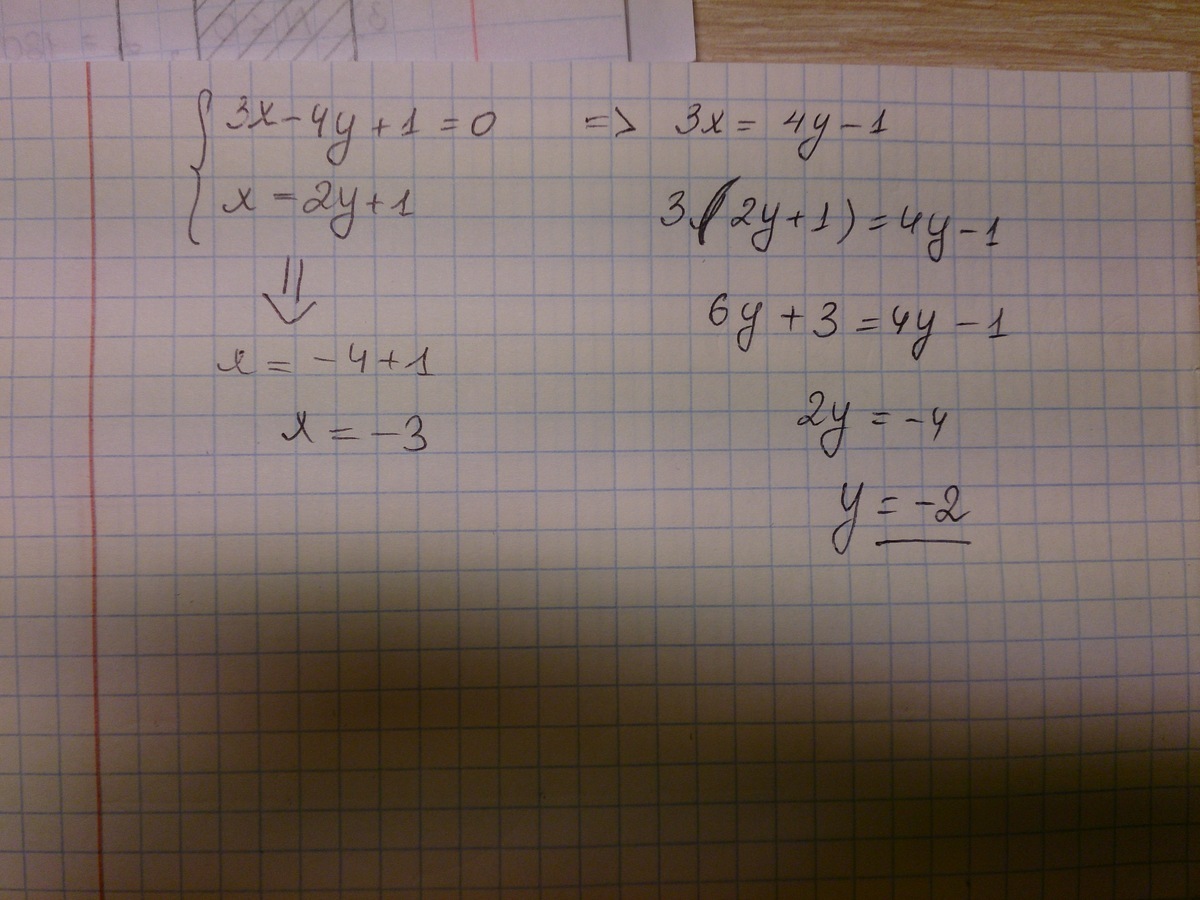 3x-4y+1=0 => 3x=4y-1
x=2y+1
3(2y+1)=4y-1
6y+3=4y-1
x=-4+1
2y=-4
x=-3
y=-2